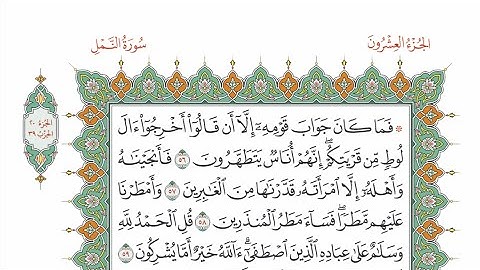 الجزء العشرون
سورة النمل
الجزء ٢٠
الحزب ٣٩
۞ فَمَا كَانَ جَوَابَ قَوْمِهِۦٓ إِلَّآ أَن قَالُوٓا۟ أَخْرِجُوٓا۟ ءَالَ
لُوطٍ مِّن قَرْيَتِكُمْ ۖ إِنَّهُمْ أُنَاسٌ يَتَطَهَّرُونَ ٥٦ فَأَنجَيْنَـٰهُ
وَأَهْلَهُۥٓ إِلَّا ٱمْرَأَتَهُۥ قَدَّرْنَـٰهَا مِنَ ٱلْغَـٰبِرِينَ ٥٧ وَأَمْطَرْنَا
عَلَيْهِم مَّطَرًا ۖ فَسَآءَ مَطَرُ ٱلْمُنذَرِينَ ٥٨ قُلِ ٱلْحَمْدُ لِلَّهِ
وَسَلَـٰمٌ عَلَىٰ عِبَادِهِ ٱلَّذِينَ ٱصْطَفَىٰٓ ۗ ءَآللَّهُ خَيْرٌ أَمَّا يُشْرِكُونَ ٥٩